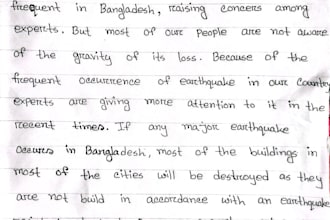 frequent in Bangladesh, raising concers among
experts. But most of our people are not aware
of the gravity of its loss. Because of the
frequent occurrence of earthquake in our Country
experts are giving more attention to it in the
recent times. If any major earthquake
occurs in Bangladesh, most of the buildings in
most of the cities will be destroyed as they
are not build in accordance with an earthquake